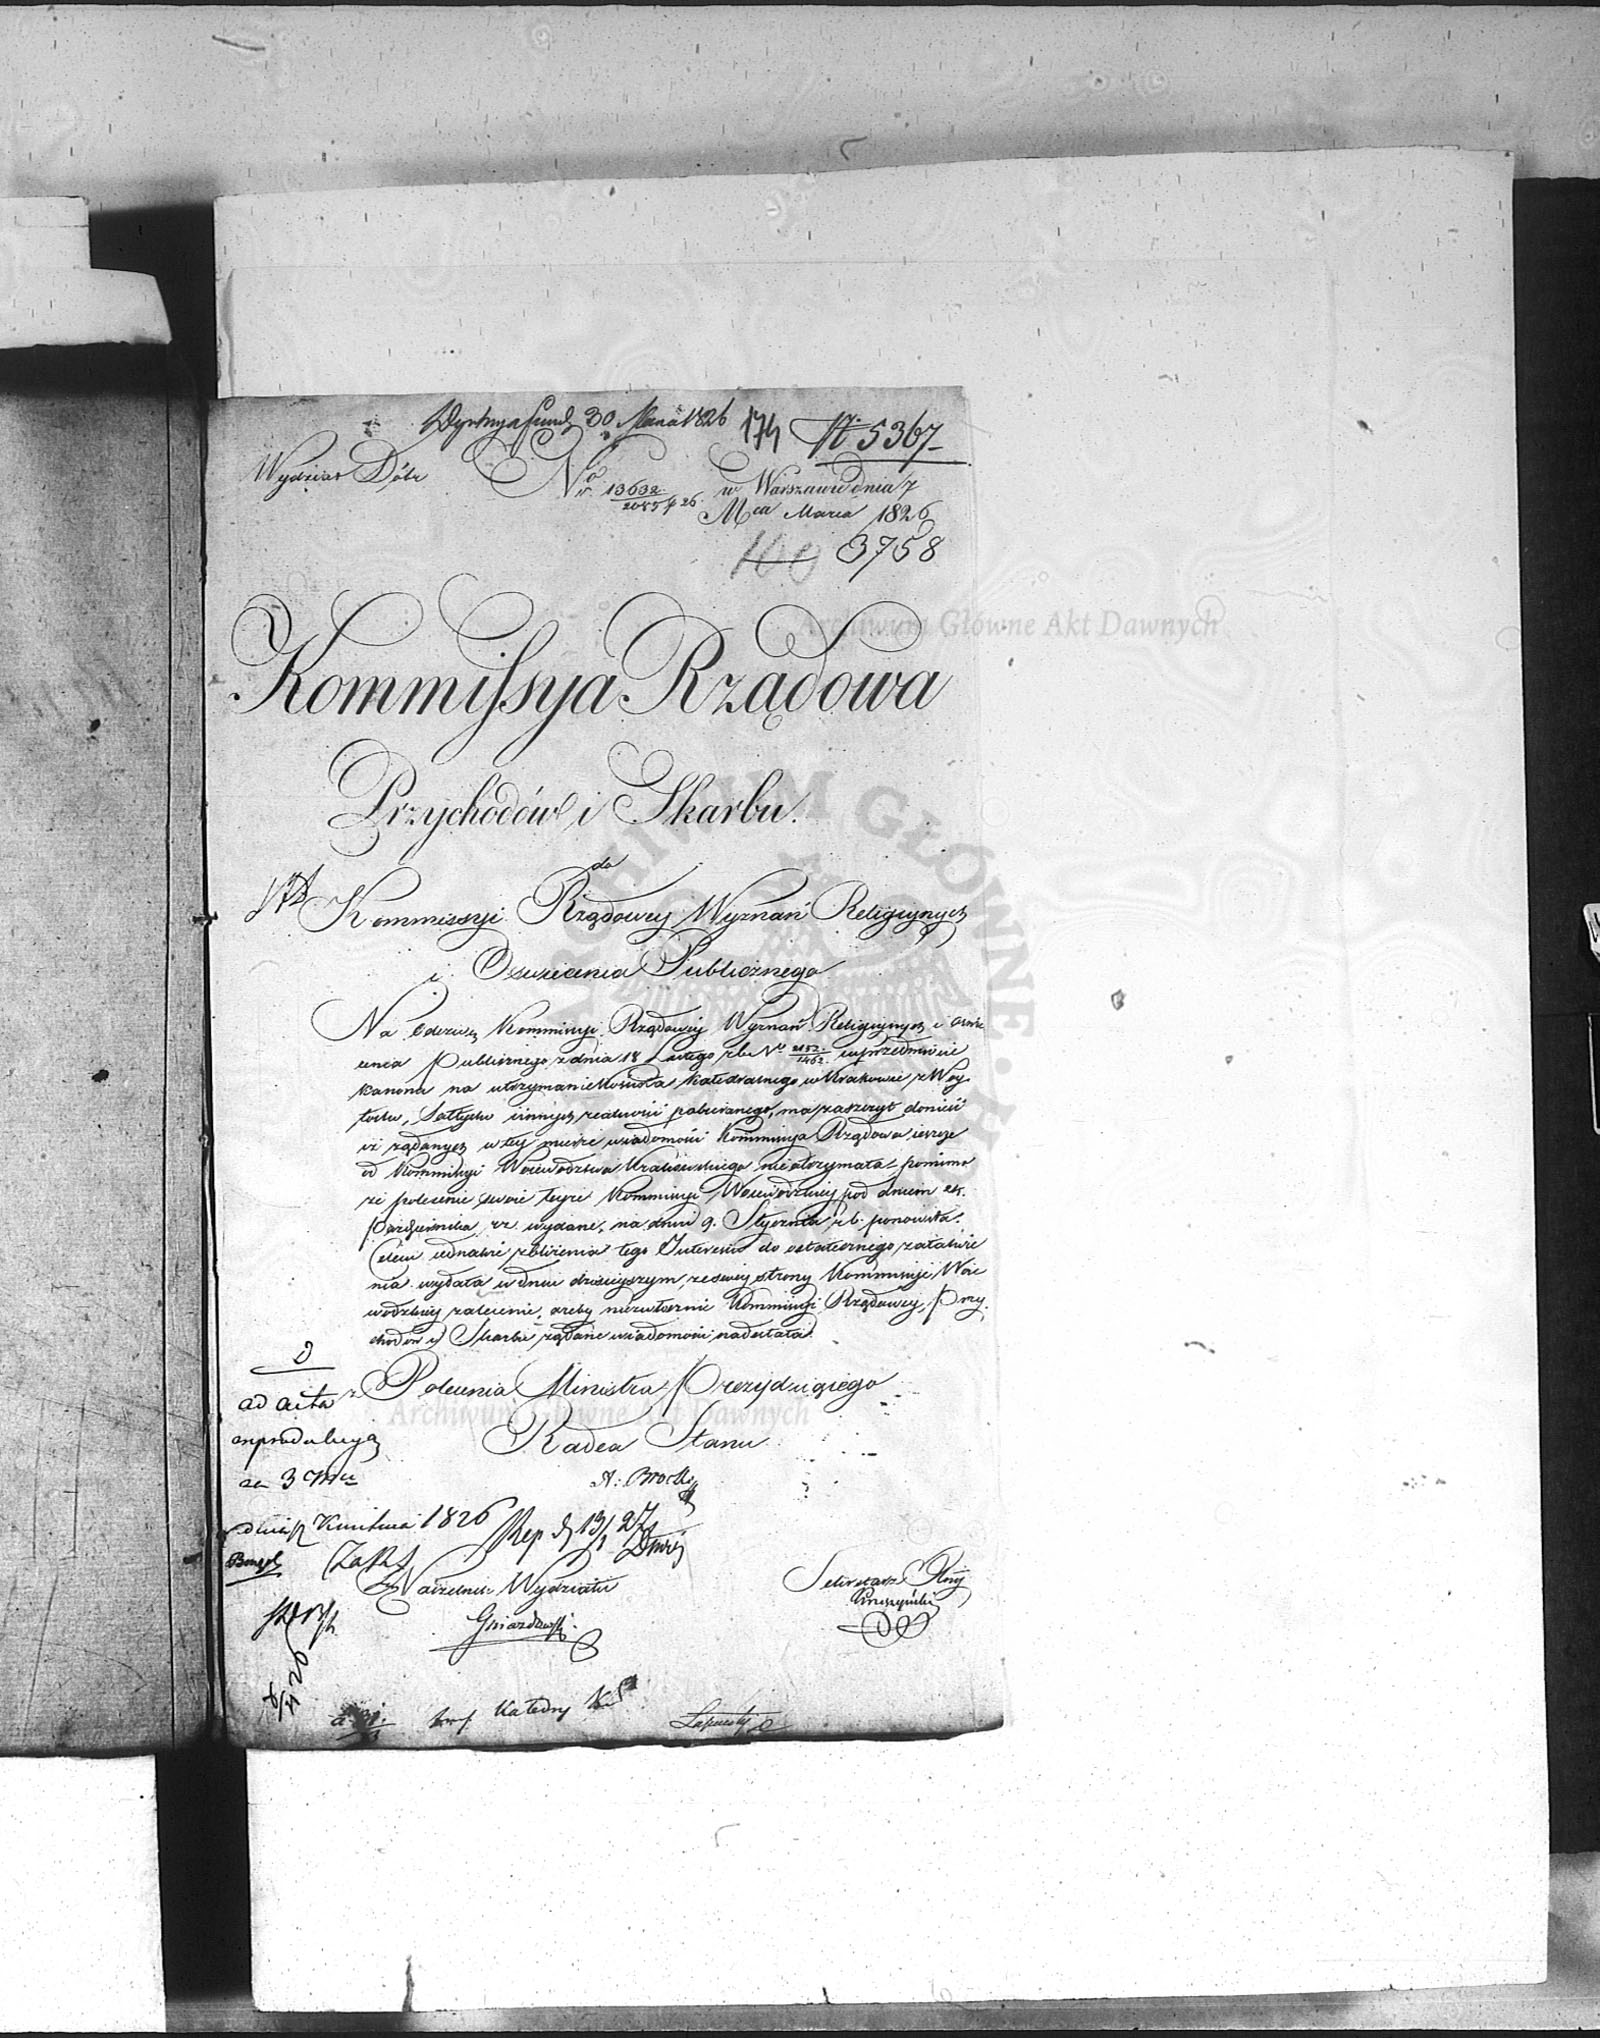 30 Marca 1826 174 N 5367
Wydział Dóbr No 13632 w Warszawie dnia 7
Mca Marca 1826
100 3758
Kommissya Rządowa
Przychodów i Skarbu.
do
Kommissyi Rządowey Wyznań Religiynych
i Oswiecenia Publicznego
Na Odezwę Kommissyi Rządowey Wyznań Religiynych i Oswie
cenia Publicznego z dnia 18 Lutego r.b. No 2152/1462 w przedmiocie
Kanonu na utrzymanie Kościoła Katedralnego w Krakowie z Woy
tostw, Sołtystw i innych realności pobieranego, ma zaszczyt donieść
iż żądanych w tey mierze wiadomości Kommissya Rządowa ieszcze
od Kommissyi Woiewodztwa Krakowskiego nie otrzymała pomimo
że polecenie swoie teyże Kommissyi Woiewodzkiey pod dniem 24.
Października r.z. wydane, na dniu 9. Stycznia r.b. ponowiła.
Celem iednakże zbliżenia tego Interessu do ostatecznego załatwie
nia wydała w dniu dzisieyszym ze swey strony Kommissyi Woie
wodzkiey zalecenie, ażeby niezwłocznie Kommissyi Rządowey Przy
chodów i Skarbu żądane wiadomości nadesłała.
z Polecenia Ministra Prezyduiącego
ad acta
Radca Stanu
za 3 Mce
A: Brocki
dnia Kwietnia 1826
Rep d 13/1 27
Naczelnik Wydziału
Sekretarz Jlny
Kruszyński
Gniazdowski
Katedry